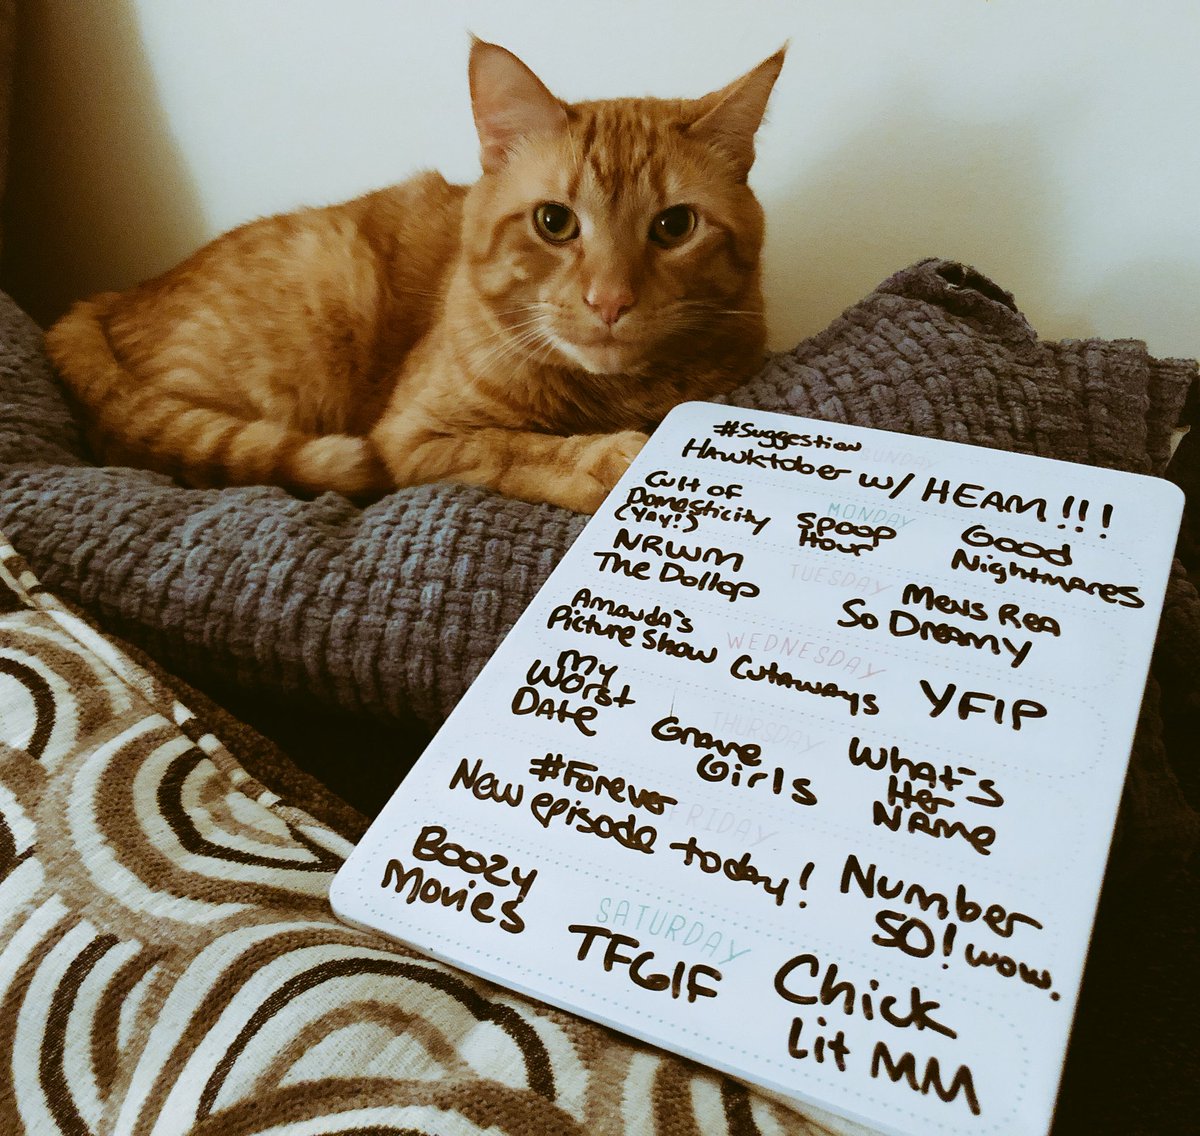 #Suggestion
SUNDAY
Hawktober w/ HEAM!!!
MONDAY
Cult of
Domesticity
(YAY!)
Spoop
Hour
Good
Nightmares
TUESDAY
NRWM
The Dollop
Mens Rea
So Dreamy
WEDNESDAY
Amanda's
Picture Show
Cutaways
YFIP
THURSDAY
My
Worst
Date
Grave
Girls
What's
Her
Name
FRIDAY
#Forever
New episode today!
Number
50! wow.
SATURDAY
Boozy
Movies
TFGIF
Chick
Lit MM